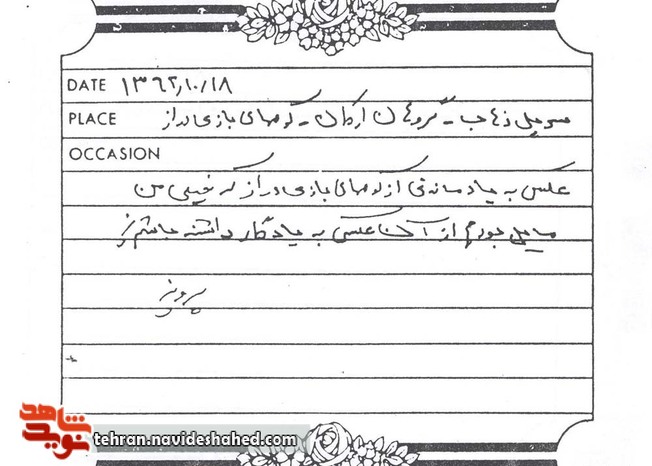 DATE ۱۳۶۲٫۱۰٫۱۸
PLACE سرپل ذهاب - گروهان ارکان - کوههای بازی دراز
OCCASION
عکس به یاد ماندنی از کوههای بازی دراز که خیلی من
مایل بودم از آن عکسی به یادگار داشته باشم
پرویز
شاهد
نوید
tehran.navideshahed.com